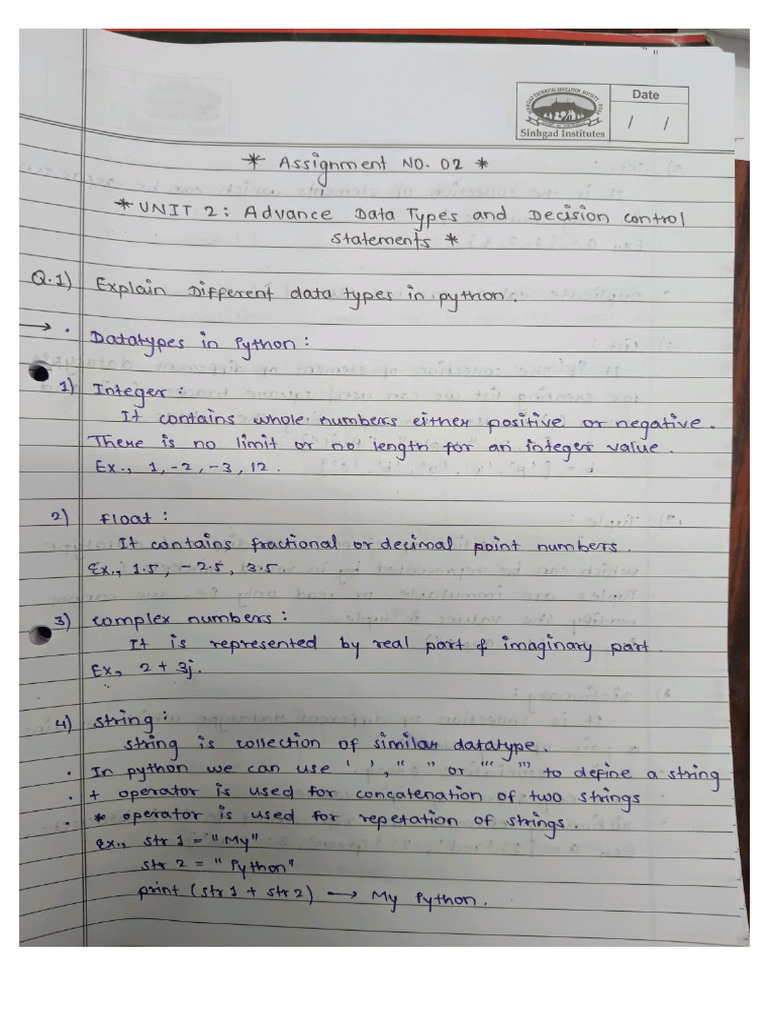 Date
/ /
Sinhgad Institutes
* Assignment NO. 02 *
* UNIT 2: Advance Data Types and Decision control
statements *
Q.1) Explain Different data types in python.
→ • Datatypes in Python:
1) Integer:
It contains whole numbers either positive or negative.
There is no limit or no length for an integer value.
Ex., 1, -2, -3, 12.
2) Float:
It contains fractional or decimal point numbers.
Ex., 1.5, -2.5, 3.5.
3) Complex numbers:
It is represented by real part & imaginary part.
Ex, 2 + 3j.
4) String:
String is collection of similar datatype.
• In python we can use ' ', " " or ''' ''' to define a string
• + operator is used for concatenation of two strings
• * operator is used for repetation of strings.
Ex., str 1 = "My"
str 2 = "Python"
print (str 1 + str 2) → My Python.